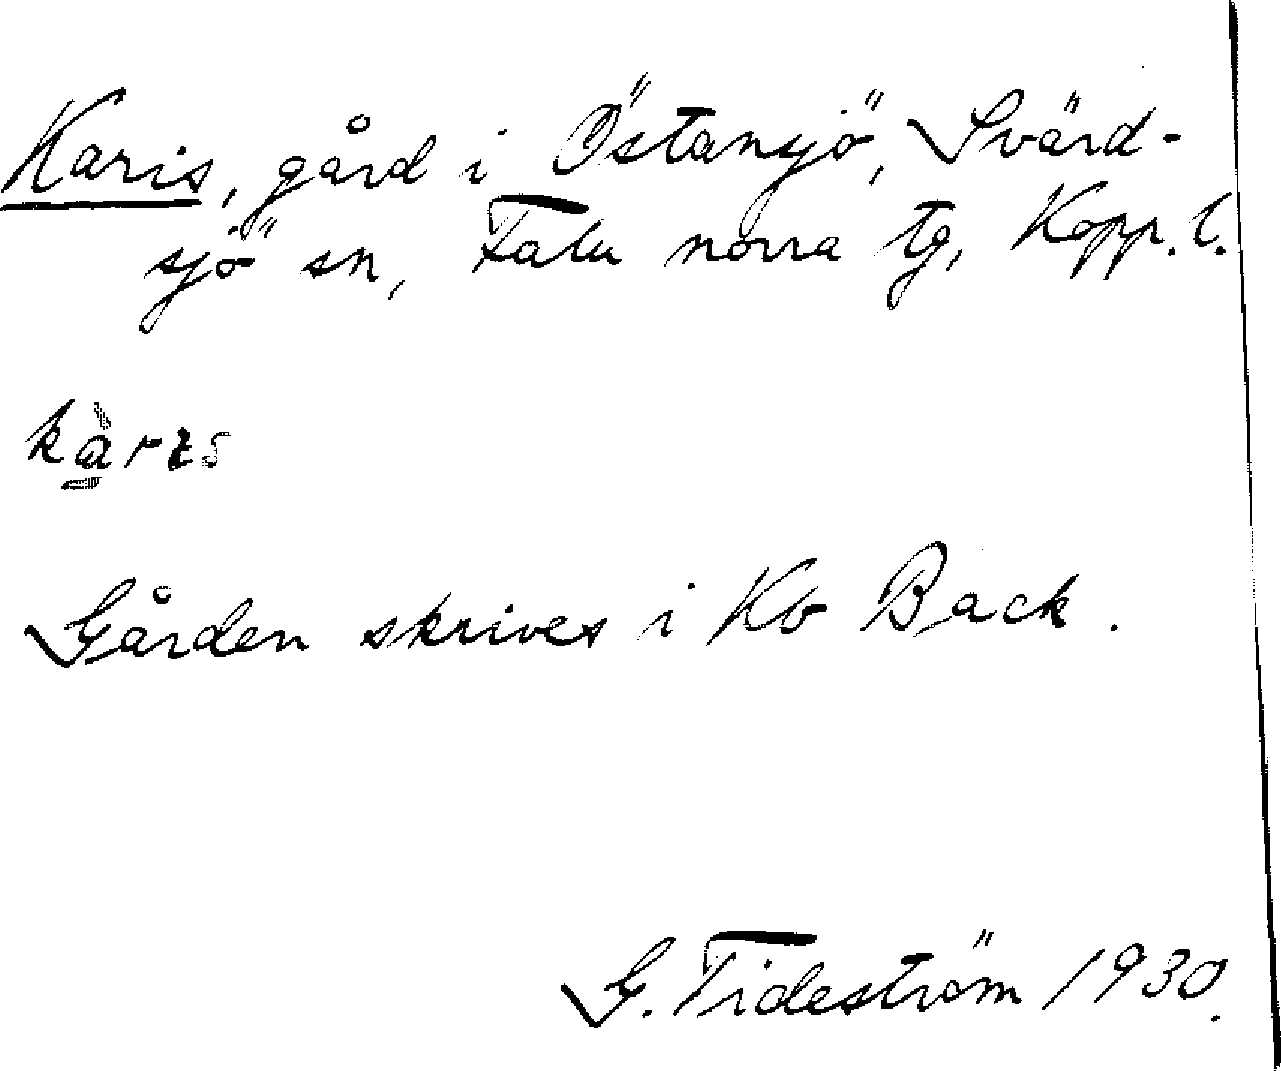 Karis, gård i Östansjö, Svärd-
sjö sn, Falu norra tg, Kopp. l.
kàrɩs
Gården skrives i Kb Back.
G. Tideström 1930.